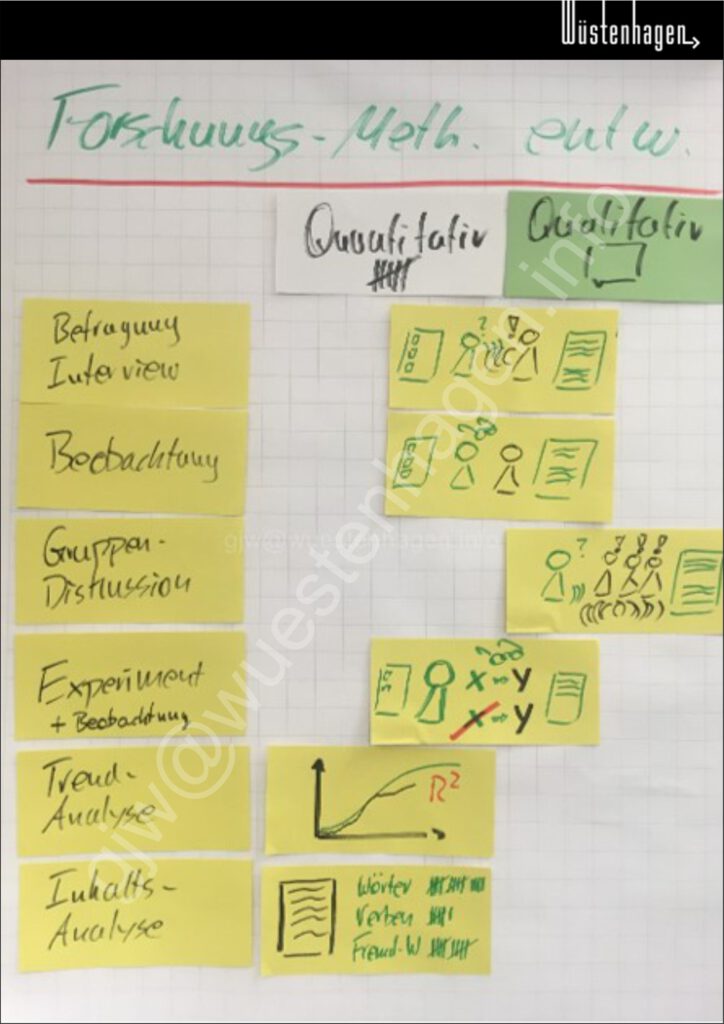 Wüstenhagen
Forschungs-Meth. entw.
Quantitativ
Qualitativ
Befragung
Interview
? !
Beobachtung
Gruppen-
Diskussion
? ? ! !
Experiment
+ Beobachtung
x → y
x → y
Trend-
Analyse
R²
Inhalts-
Analyse
Wörter
Verben
Fremd-W
gjw@wuestenhagen.info
gjw@wuestenhagen.info